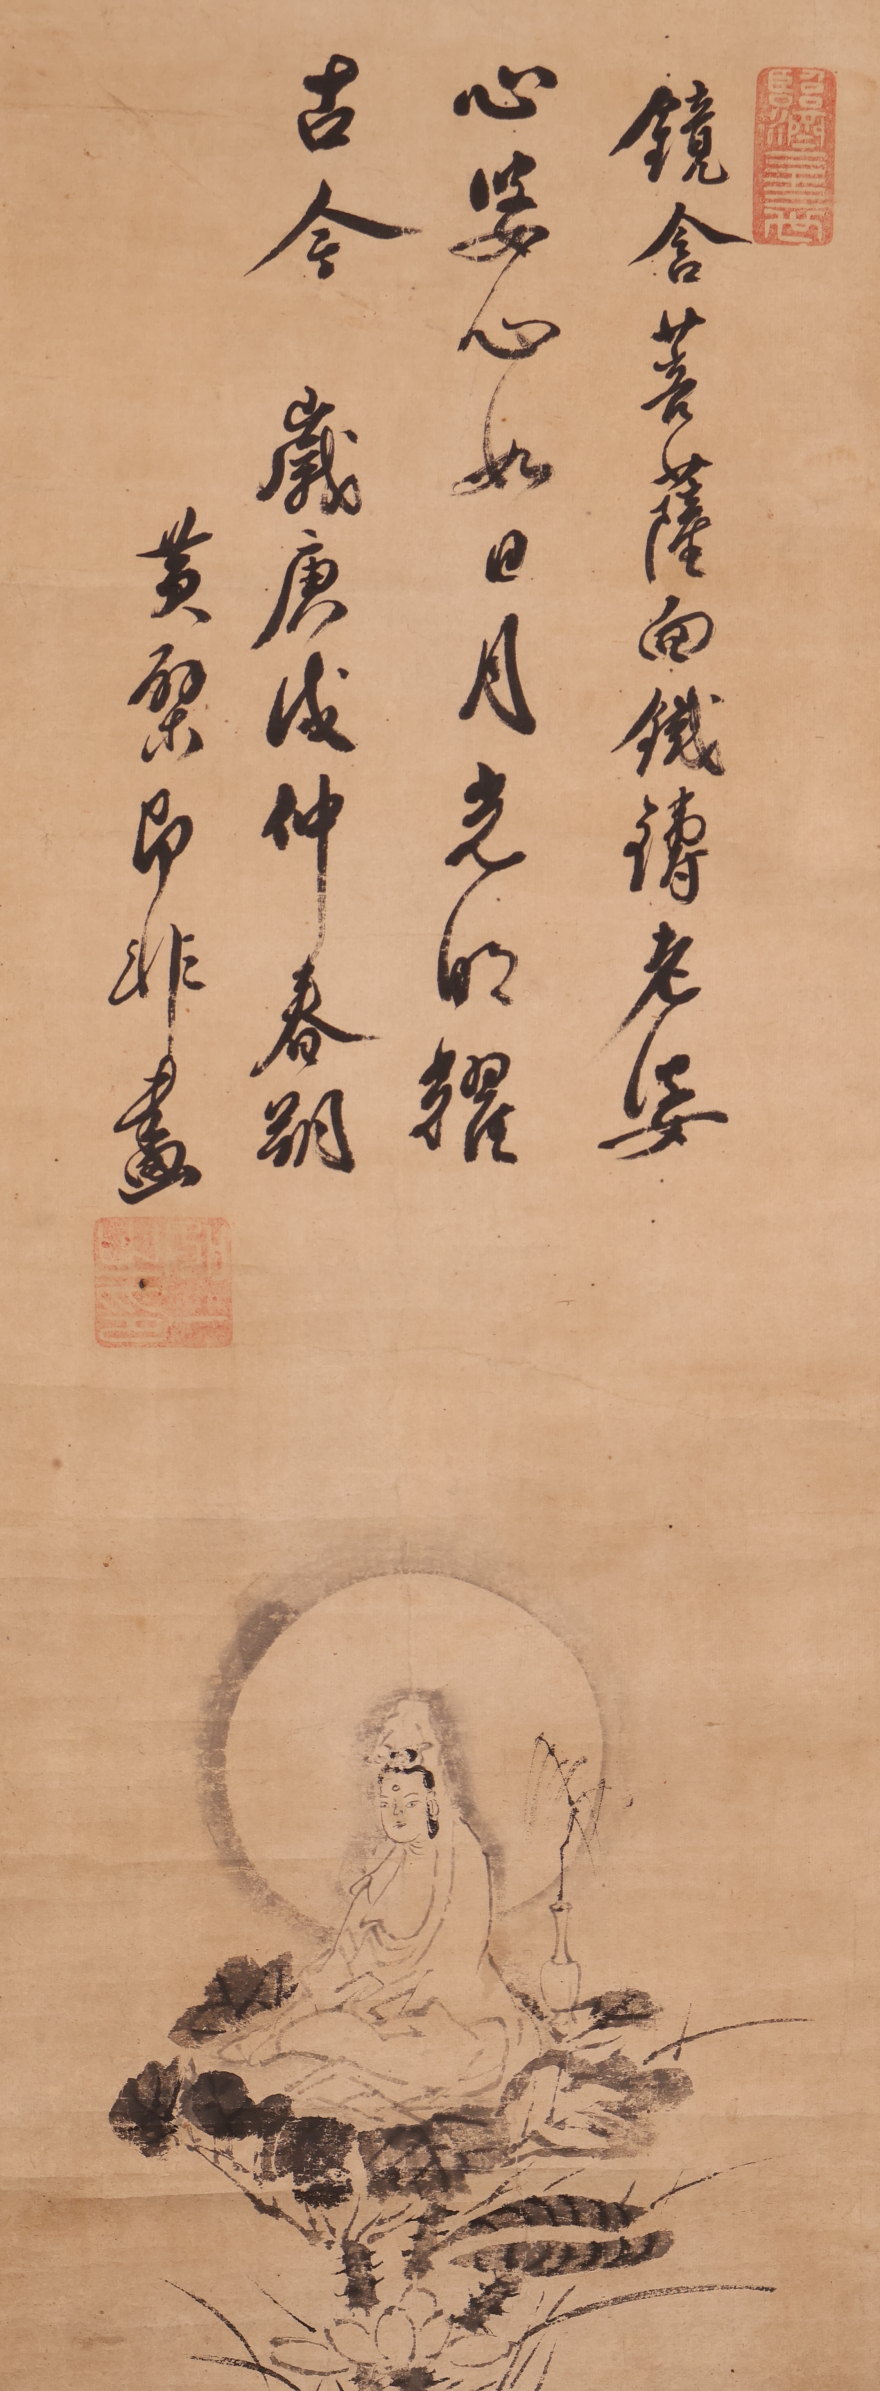 鏡含菩薩面鐵鑄老婆
心婆心如日月光明耀
古今 歲庚戌仲春朔
黄檗即非畫